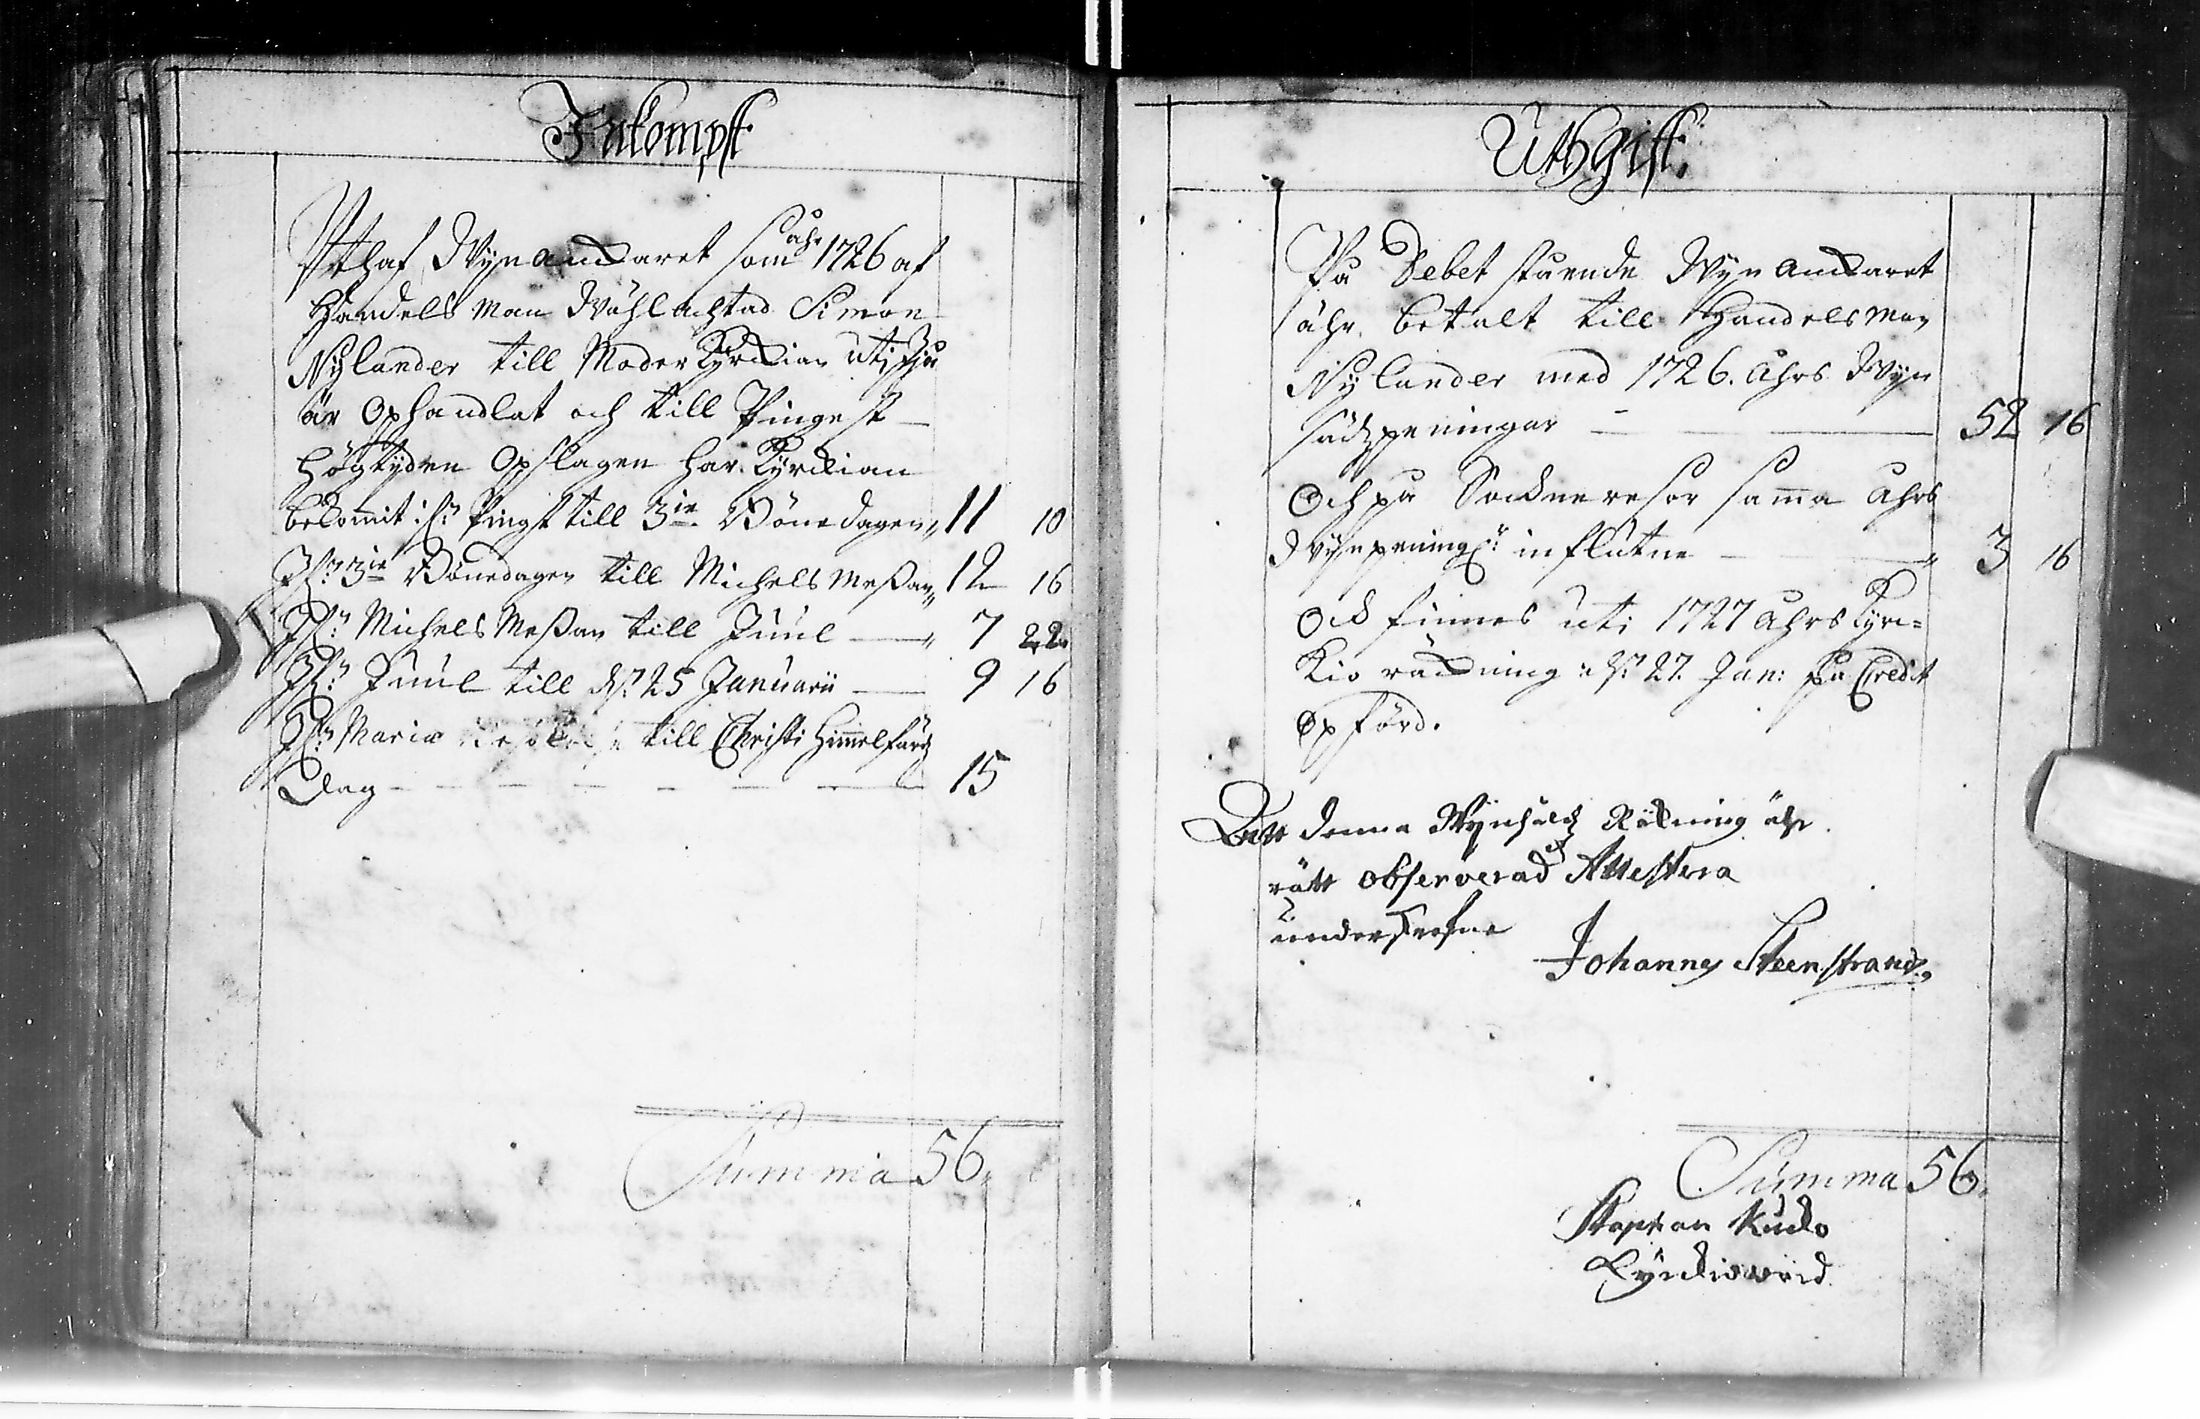 Inkompst
Uthaf Wynanckaret som åhr 1726 af
Handels Man Wählachtad Simon
Nylander till Moder Kyrckian uti
är Ophandlat och till Pingest
högtyden Opslagen har Kyrckian
bekommit: fr: Pingst till 3ie Bönedagen 11 10
Ifr: 3ie Bönedagen till Michels Messan 12 16
Ifr: Michels Messan till Juul 7 22
Ifr: Juul till d: 25 Januarii 9 16
Ifr: Mariæ till Christi Himmelfärdz
Dag 15
Summa 56
Uthgift
På Debet stående Wyn anckaret
ähr betalt till Handels Man
Nylander med 1726. åhrs Wyn
sädzpeningar 52 16
Och på Socknenesor samma åhrs
Wynpening: influtne 3 16
Och finnes uti 1727 åhrs Kyrc=
kio räckning d: 27. Jan: på Credit
opförd.
Att denna Wynsädz Räkning ähr
rätt observerad Attestera
underskrefne
Johannes Steenstrand
Summa 56
Staphan Kucko
Kyrckiovärd